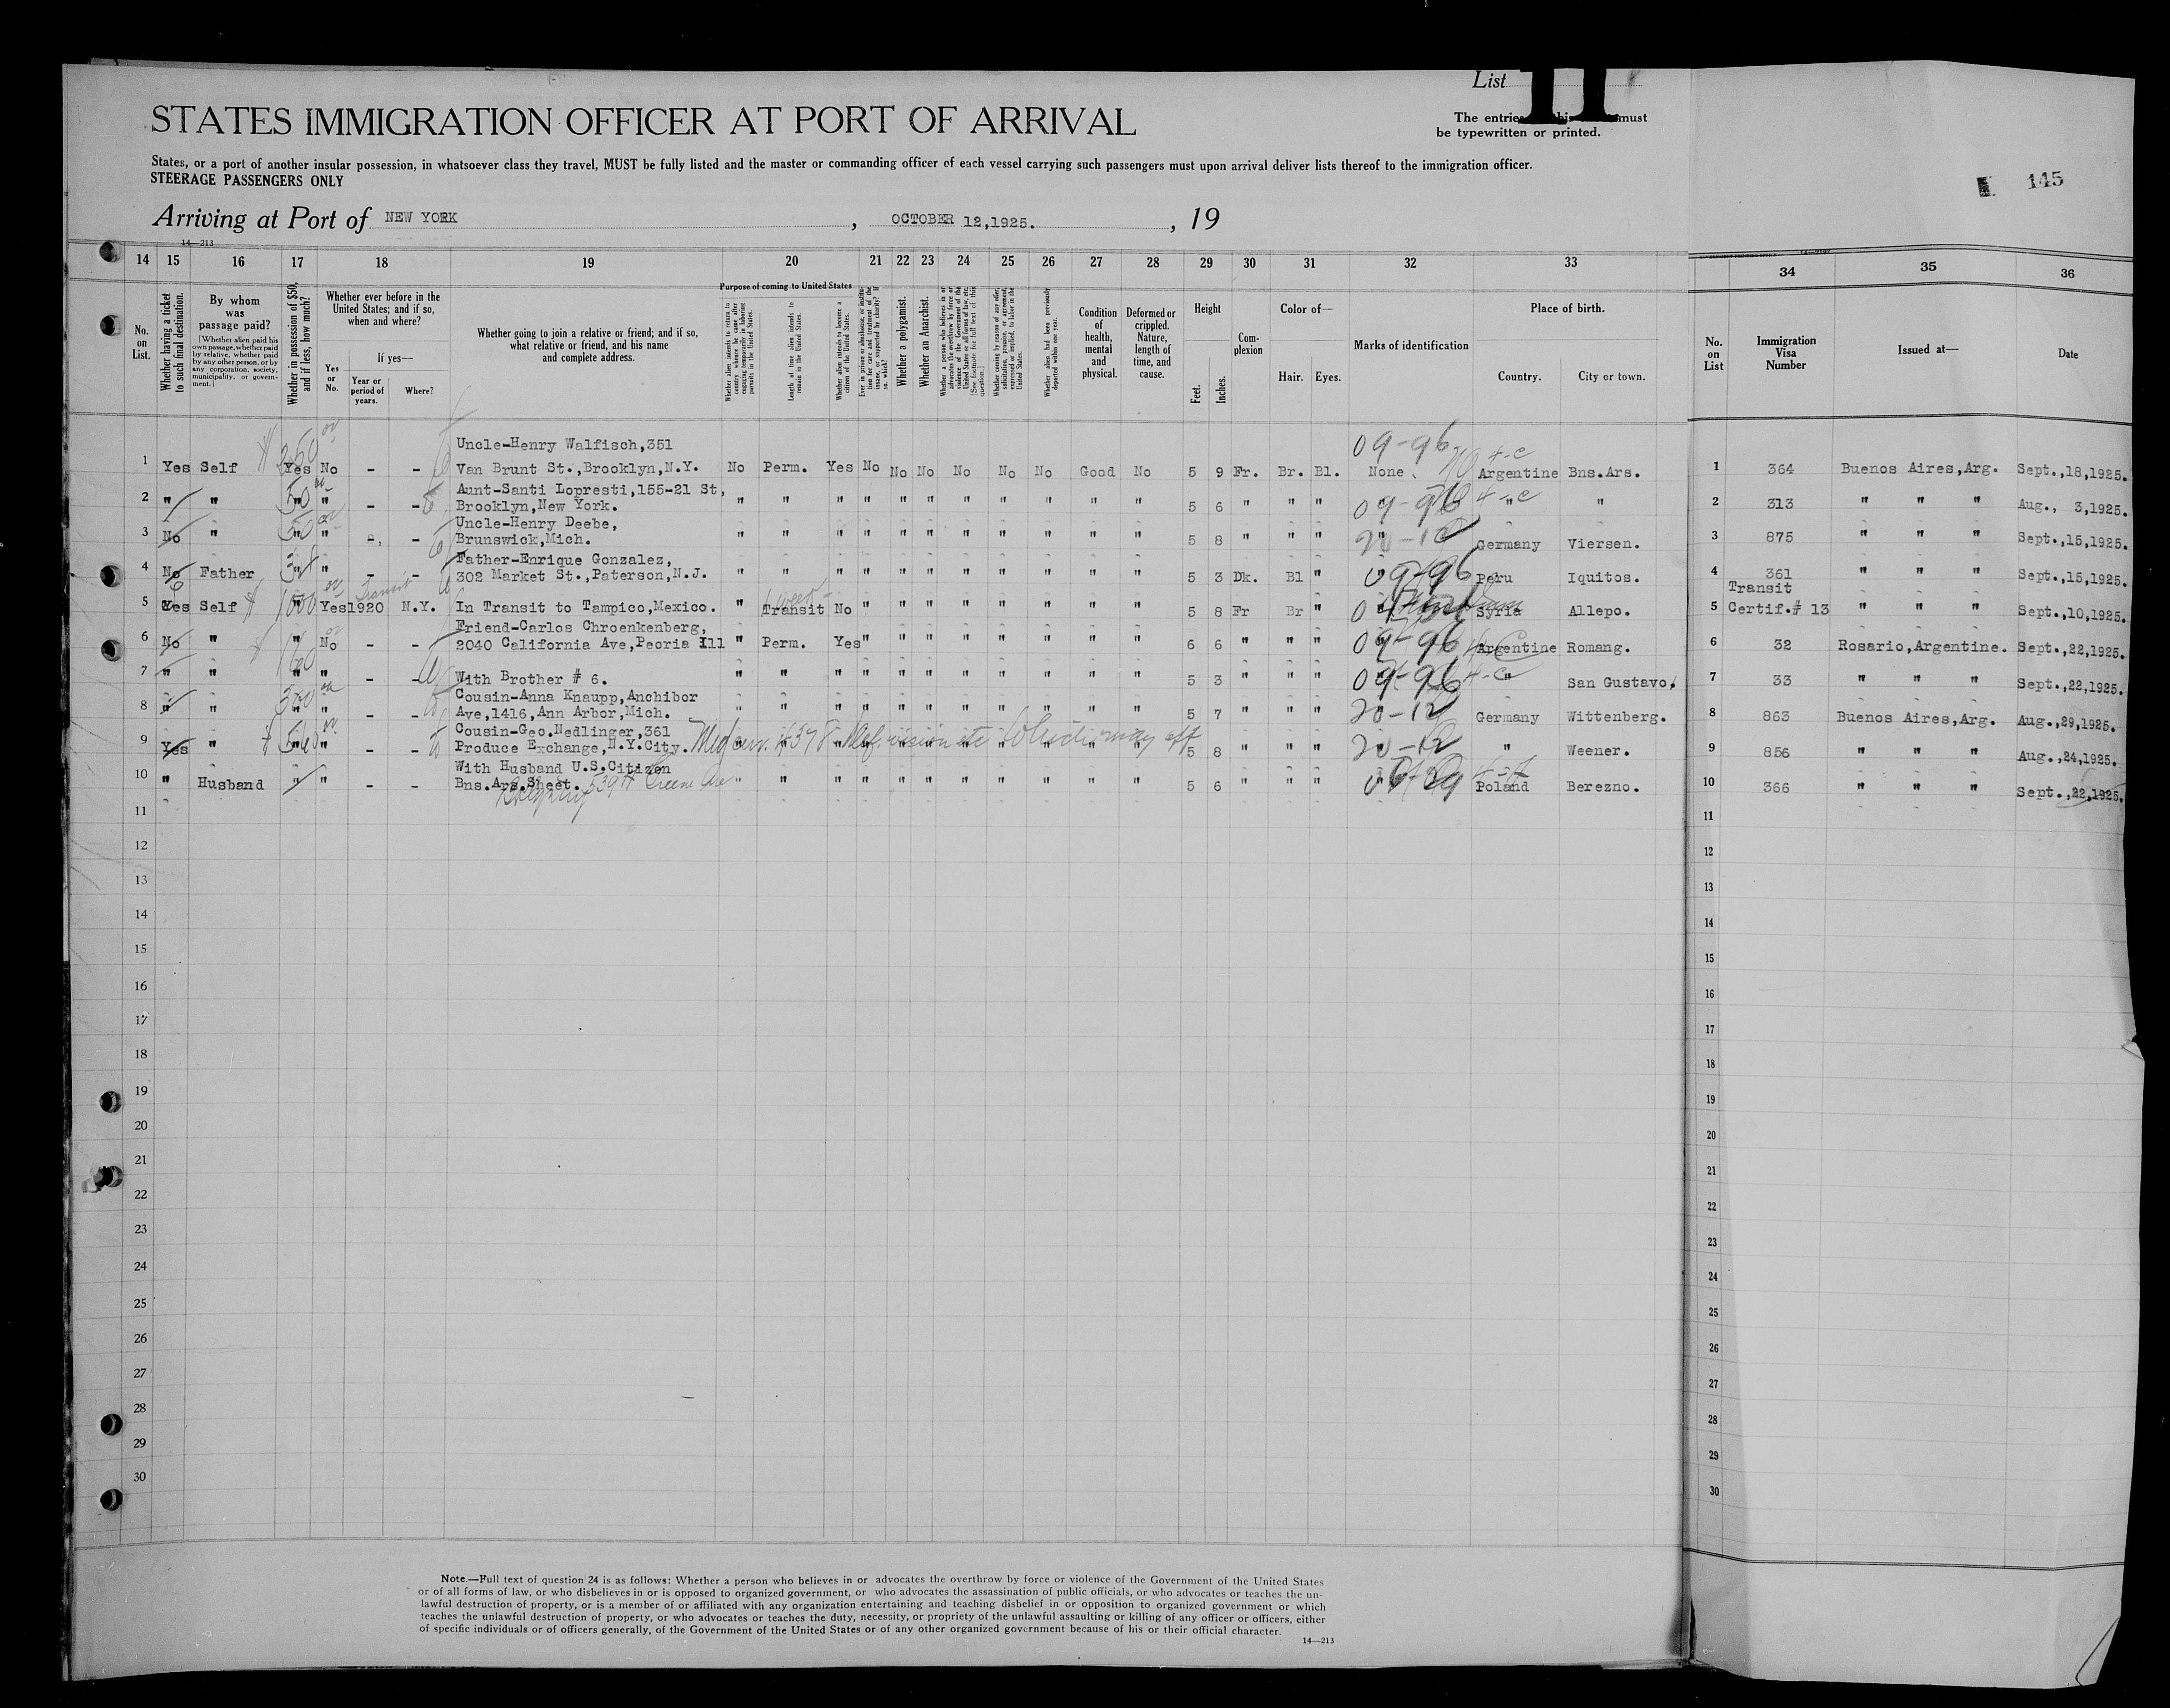 List 11
STATES IMMIGRATION OFFICER AT PORT OF ARRIVAL
The entries this must
be typewritten or printed.
States, or a port of another insular possession, in whatsoever class they travel, MUST be fully listed and the master or commanding officer of each vessel carrying such passengers must upon arrival deliver lists thereof to the immigration officer.
STEERAGE PASSENGERS ONLY
145
Arriving at Port of NEW YORK , OCTOBER 12,1925. , 19
14—213
14 15 16 17 18 19 20 21 22 23 24 25 26 27 28 29 30 31 32 33 34 35 36
No. on List.
Whether having a ticket to such final destination.
By whom was passage paid?
[Whether alien paid his own passage, whether paid by relative, whether paid by any other person, or by any corporation, society, municipality, or government.]
Whether in possession of $50, and if less, how much?
Whether ever before in the United States; and if so, when and where?
Yes or No.
If yes—
Year or period of years.
Where?
Whether going to join a relative or friend; and if so, what relative or friend, and his name and complete address.
Purpose of coming to United States
Whether alien intends to return to country whence he came after engaging temporarily in laboring pursuits in the United States.
Length of time alien intends to remain in the United States.
Whether alien intends to become a citizen of the United States.
Whether a polygamist.
Whether an Anarchist.
Whether alien had been previously deported within one year.
Condition of health, mental and physical.
Deformed or crippled. Nature, length of time, and cause.
Height
Feet.
Inches.
Complexion
Color of—
Hair.
Eyes.
Marks of identification
Place of birth.
Country.
City or town.
No. on List
Immigration Visa Number
Issued at—
Date
Uncle-Henry Walfisch,351
09-96
1 Yes Self Yes No - - Van Brunt St.,Brooklyn,N.Y. No Perm. Yes No No No No No No Good No 5 9 Fr. Br. Bl. None Argentine Bns.Ars. 1 364 Buenos Aires,Arg. Sept.,18,1925.
Aunt-Santi Lopresti,155-21 St,
2 " " " " - - Brooklyn,New York. " " " " " " " " " " " 5 6 " " " 09-96 " " 2 313 " " " Aug., 3,1925.
Uncle-Henry Deebe,
3 No " " " - - Brunswick,Mich. " " " " " " " " " " " 5 8 " " " " Germany Viersen. 3 875 " " " Sept.,15,1925.
Father-Enrique Gonzalez,
4 No Father " " - - 302 Market St.,Paterson,N.J. " " " " " " " " " " " 5 3 Dk. Bl " 09-96 Peru Iquitos. 4 361 " " " Sept.,15,1925.
Transit
5 Yes Self " Yes 1920 N.Y. In Transit to Tampico,Mexico. " Transit No " " " " " " " " 5 8 Fr Br " " Syria Allepo. 5 Certif.# 13 " " " Sept.,10,1925.
Friend-Carlos Chroenkenberg,
6 No " " No - - 2040 California Ave,Peoria Ill " Perm. Yes " " " " " " " " 6 6 " " " 09-96 Argentine Romang. 6 32 Rosario,Argentine. Sept.,22,1925.
7 " " " " - - With Brother # 6. " " " " " " " " " " " 5 3 " " " 09-96 " San Gustavo. 7 33 " " " Sept.,22,1925.
Cousin-Anna Knaupp,Anchibor
8 " " " " - - Ave,1416,Ann Arbor,Mich. " " " " " " " " " " " 5 7 " " " " Germany Wittenberg. 8 863 Buenos Aires,Arg. Aug.,29,1925.
Cousin-Geo.Nedlinger,361
9 Yes " " " - - Produce Exchange,N.Y.City. " " " " " " " " " " " 5 8 " " " " " Weener. 9 856 " " " Aug.,24,1925.
With Husband U.S.Citizen
10 " Husband " " - - Bns.Ars.Sheet. " " " " " " " " " " " 5 6 " " " " Poland Berezno. 10 366 " " " Sept.,22,1925.
11 11
12 12
13 13
14 14
15 15
16 16
17 17
18 18
19 19
20 20
21 21
22 22
23 23
24 24
25 25
26 26
27 27
28 28
29 29
30 30
Note.—Full text of question 24 is as follows: Whether a person who believes in or advocates the overthrow by force or violence of the Government of the United States
or of all forms of law, or who disbelieves in or is opposed to organized government, or who advocates the assassination of public officials, or who advocates or teaches the un-
lawful destruction of property, or is a member of or affiliated with any organization entertaining and teaching disbelief in or opposition to organized government or which
teaches the unlawful destruction of property, or who advocates or teaches the duty, necessity, or propriety of the unlawful assaulting or killing of any officer or officers, either
of specific individuals or of officers generally, of the Government of the United States or of any other organized government because of his or their official character.
14—213